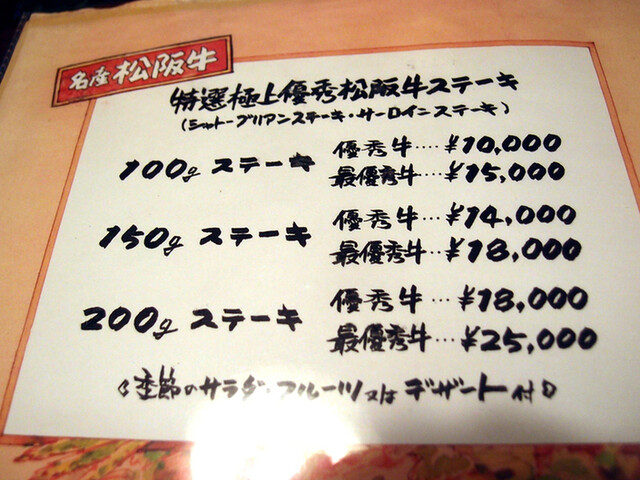 名産 松阪牛
特選極上優秀松阪牛ステーキ
(シャトーブリアンステーキ・サーロインステーキ)
100g ステーキ
優秀牛‥‥¥10,000
最優秀牛‥¥15,000
150g ステーキ
優秀牛‥‥¥14,000
最優秀牛‥¥18,000
200g ステーキ
優秀牛‥‥¥18,000
最優秀牛‥¥25,000
〈季節のサラダ・フルーツ又はデザート付〉